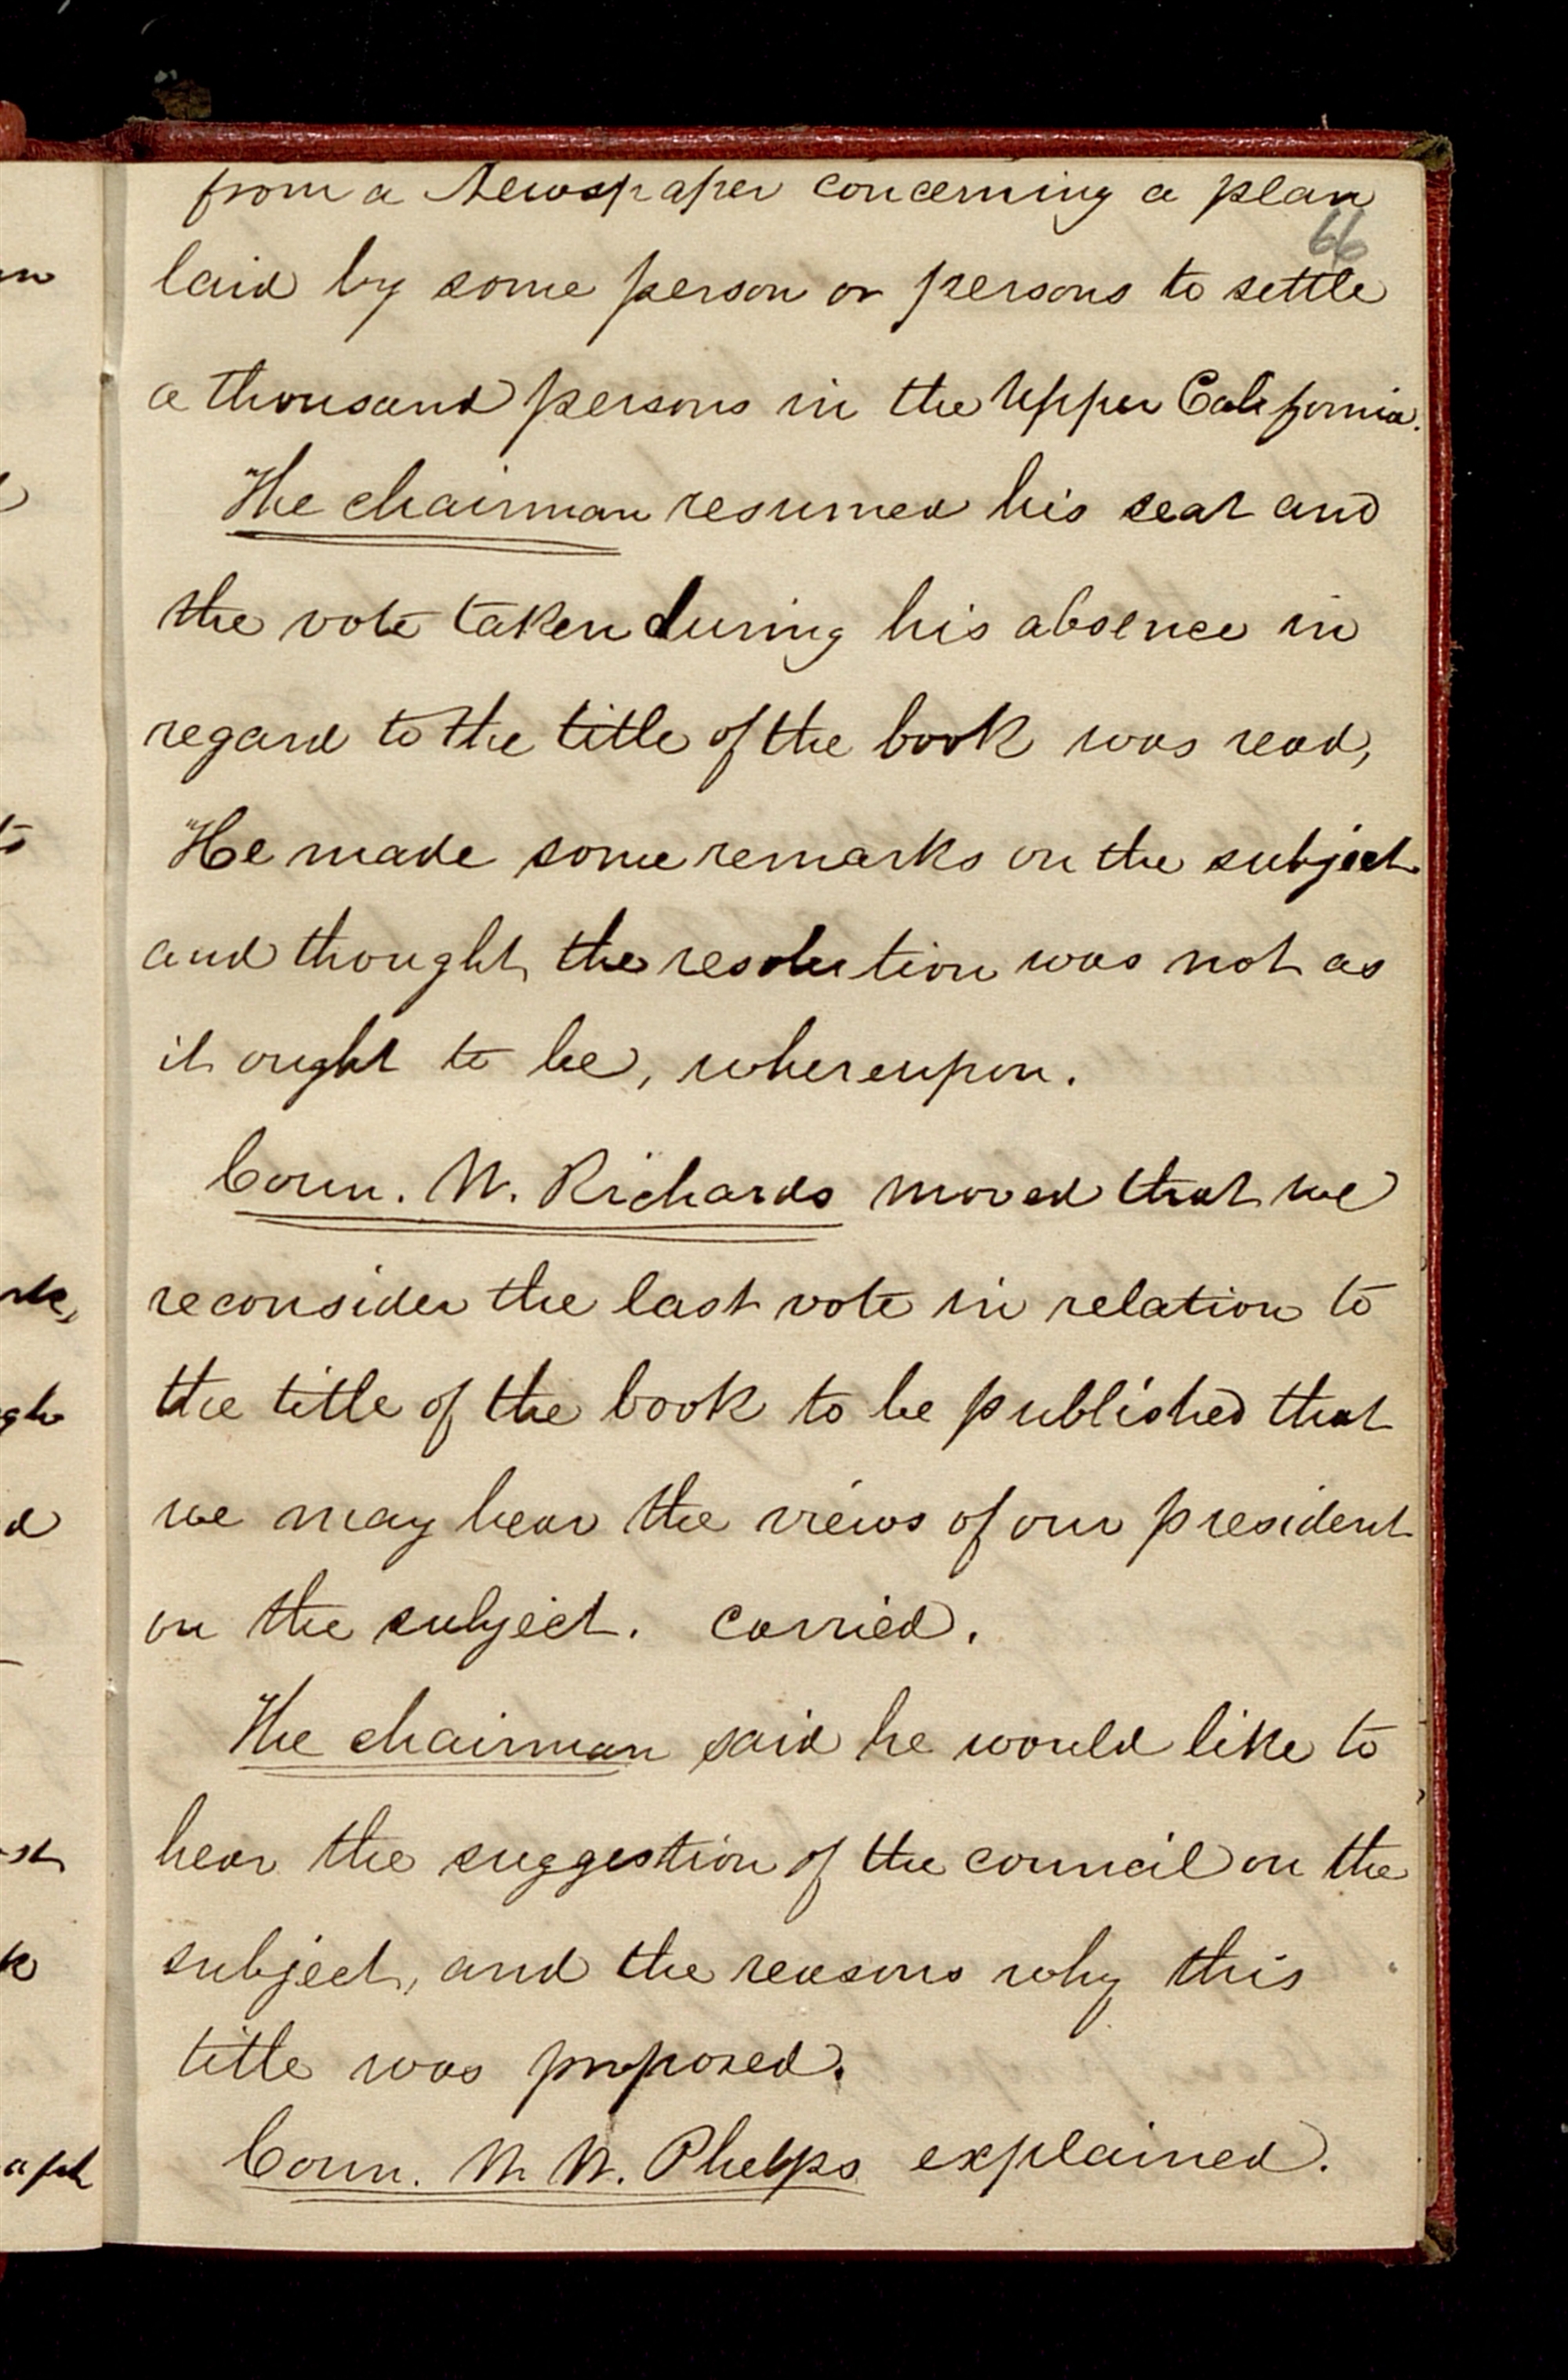 from a Newspaper concerning a plan
66
laid by some person or persons to settle
a thousand persons in the Upper California.
The chairman resumed his seat and
the vote taken during his absence in
regard to the title of the book was read,
He made some remarks on the subject
and thought the resolution was not as
it ought to be, whereupon.
Coun. W. Richards moved that we
reconsider the last vote in relation to
the title of the book to be published that
we may hear the views of our president
on the subject. carried.
The chairman said he would like to
hear the suggestion of the council on the
subject, and the reasons why this
title was proposed.
Coun. W. W. Phelps explained.